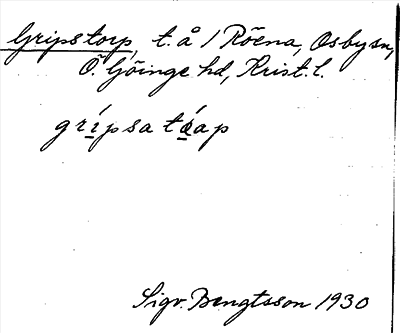 Gripstorp, t. å / Röena, Osby sn,
Ö. Göinge hd, Krist. l.
grípsatáap
Sigv. Bengtsson 1930